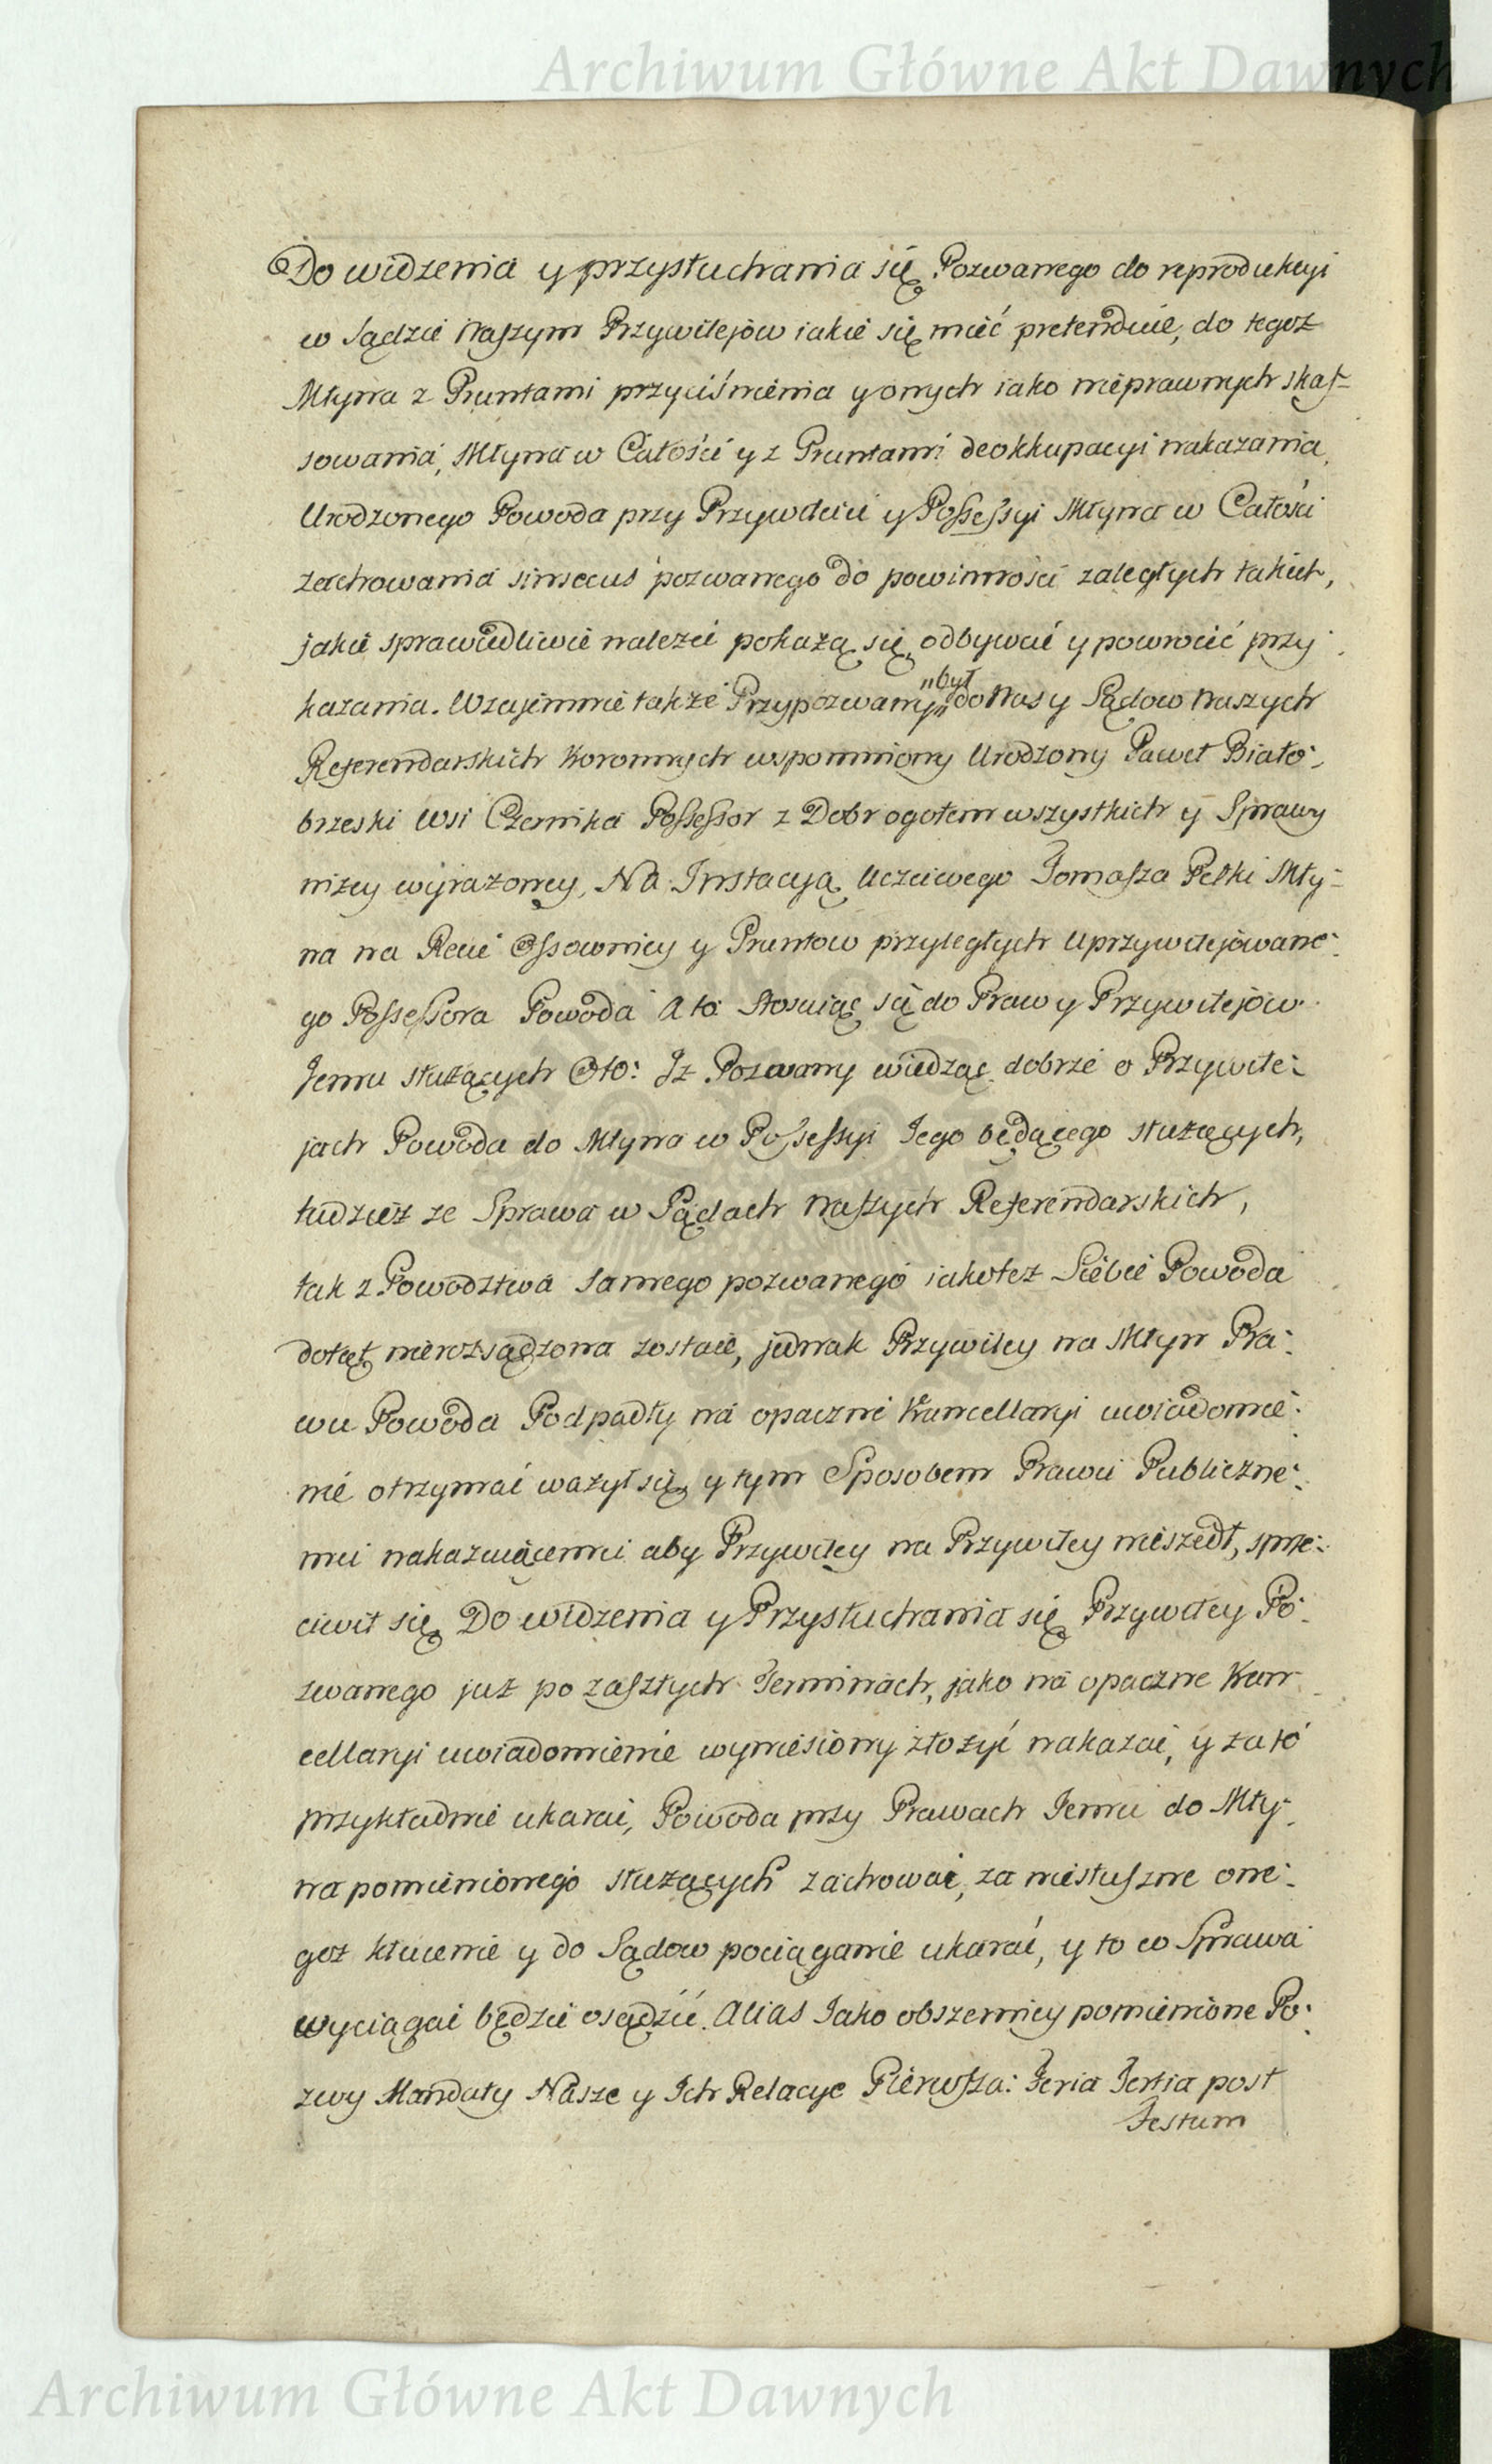 Archiwum Główne Akt Dawnych
Do widzenia y przysłuchania się Pozwanego do reprodukcyi
w Sądzie Naszym Przywilejow iakie się mieć pretenduie, do tegoż
Młyna z Gruntami przyciśnienia y onych iako nieprawnych skas-
sowania, Młyna w Całości y z Gruntami deokkupacyi nakazania,
Urodzonego Powoda przy Przywileiu y Possessyi Młyna w Całości
zachowania simsecus pozwanego do powinności zaległych takich,
jakie sprawiedliwie należeć pokażą się odbywać y powrocić przy:
kazania. Wzajemnie także Przypozwany „był„ do Nas y Sądow Naszych
Referendarskich Koronnych wspomniony Urodzony Paweł Biało:
brzeski Wsi Czernika Possessor z Dobr ogołem wszystkich y Sprawy
niżey wyrażoney, Na Instacyą Uczciwego Tomasza Pełki Mły-
na na Rzece Ossownicy y Gruntow przyległych Uprzywilejowane:
go Possessora Powoda A to: Stosuiąc się do Praw y Przywilejow
Jemu służących Oto: Iż Pozwany wiedząc dobrze o Przywile:
jach Powoda do Młyna w Possessyi Jego będącego służących,
tudzież że Sprawa w Sądach Naszych Referendarskich,
tak z Powodztwa samego pozwanego iakoteż Siebie Powoda
dotąt nierozsądzona zostaie, jednak Przywiley na Młyn Pra:
wu Powoda Podpadły na opaczne Kancellaryi uwiadomie:
nie otrzymać ważył się, y tym Sposobem Prawu Publiczne:
mu nakazuiącemu aby Przywiley na Przywiley nieszedł, sprze:
ciwił się Do widzenia y Przysłuchania się Przywiley Po:
zwanego już po zaszłych Terminach, jako na opaczne Kan-
cellaryi uwiadomienie wyniesiony złożyć nakazać, y za to
przykładnie ukarać, Powoda przy Prawach Jemu do Mły:
na pomienionego służących zachować, za niesłuszne one:
goż kłucenie y do Sądow pociąganie ukarać, y to co Sprawa
wyciągać będzie osądzić. Alias Jako obszerniey pomienione Po:
zwy Mandaty Nasze y Ich Relacye Pierwsza: Feria Tertia post
Festum
Archiwum Główne Akt Dawnych